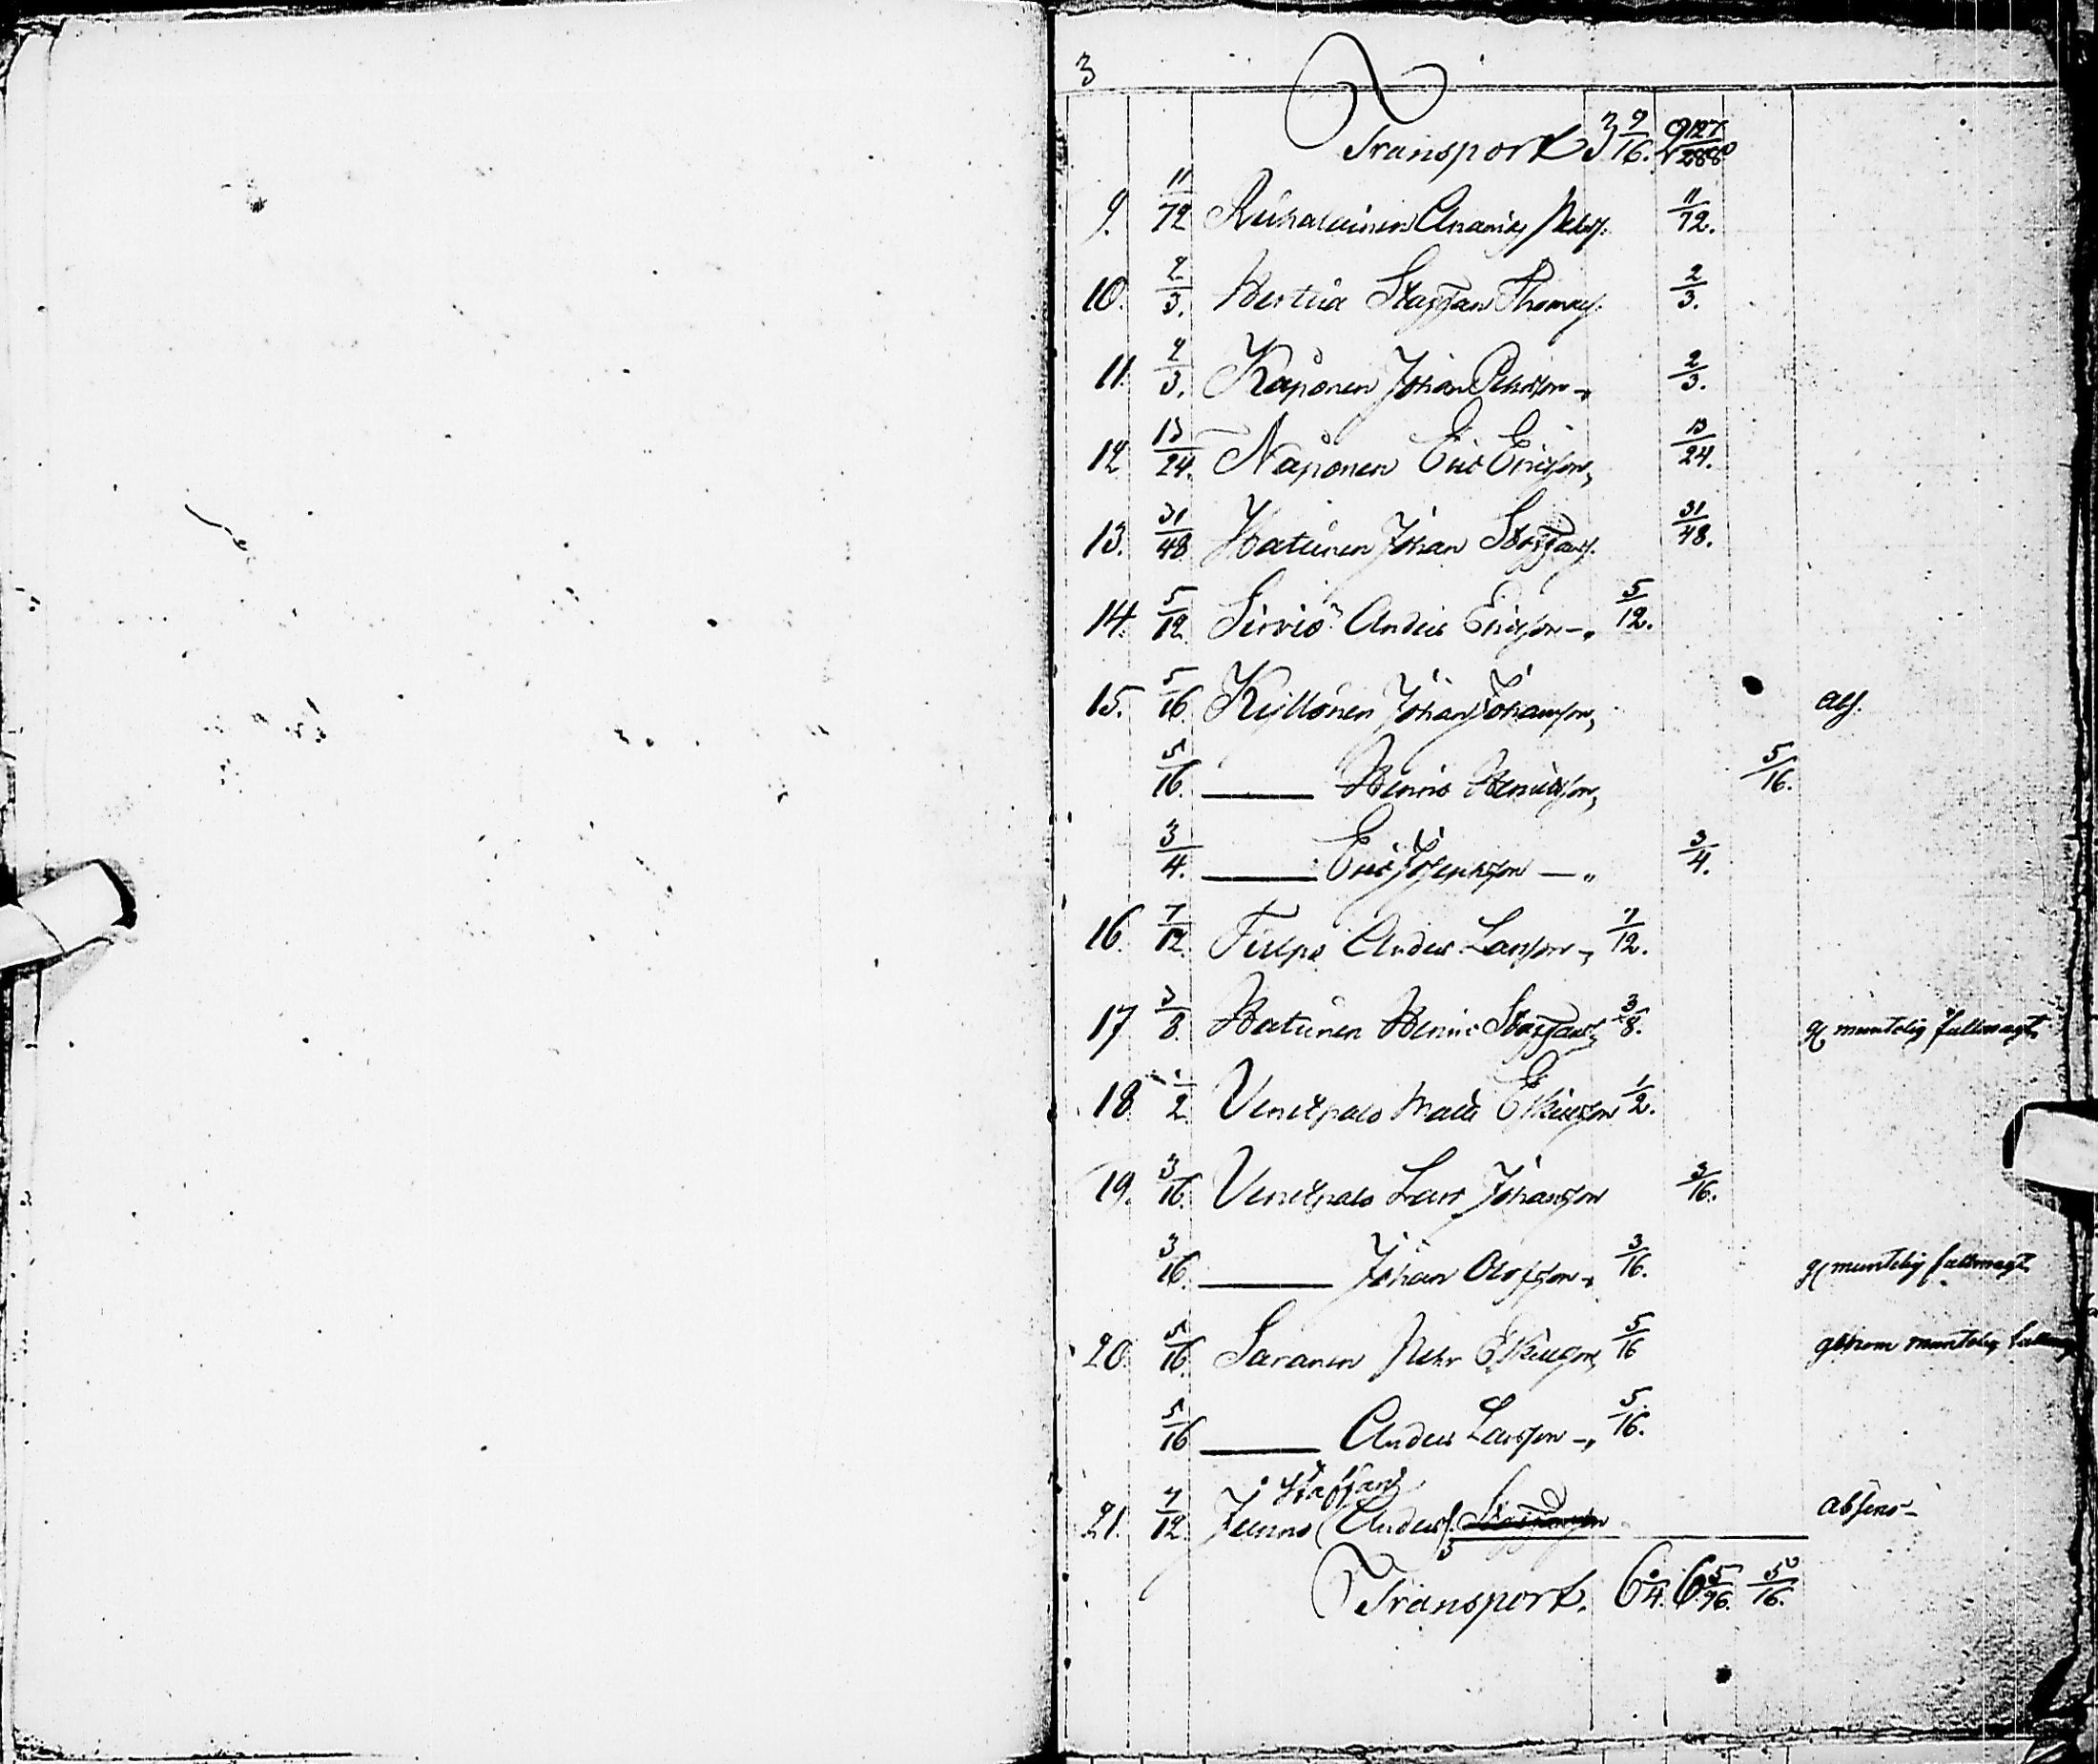 3
Transport 3 9/16. 2 127/288
9. 11/72 Pehrs. 11/72.
10. 2/3. Staffan Thomas. 2/3.
11. 2/3. Kåponen Johan Pehrsson 2/3.
12 13/24. Nåponen Eric Ericsson, 13/24.
13. 31/48 Hatunen Johan Staffans. 31/48.
14. 5/12 Sirviö Anders Ericsson 5/12.
15. 5/16 Kyllönen Johan Johansson, abs.
5/16. — Henric Henricsson, 5/16.
3/4. — Eric Josephsson — 3/4.
16. 7/12. Anders Larsson 7/12.
17 3/8. Hatunen Henric Staffans 3/8. g muntelig fullmagt
18 1/2 Venetpalo Mats Erikson 1/2.
19. 3/16. Venetpalo Lars Johansson 3/16.
3/16. — Johan Olofsson 3/16. g muntelig fullmagt
20. 5/16. Saranen Pehr 5/16 genom muntelig
5/16 — Anders Larsson 5/16.
Staffans
21. 7/12 Juuno Anders absens
Transport. 6 1/4. 6 5/96. 5/16.